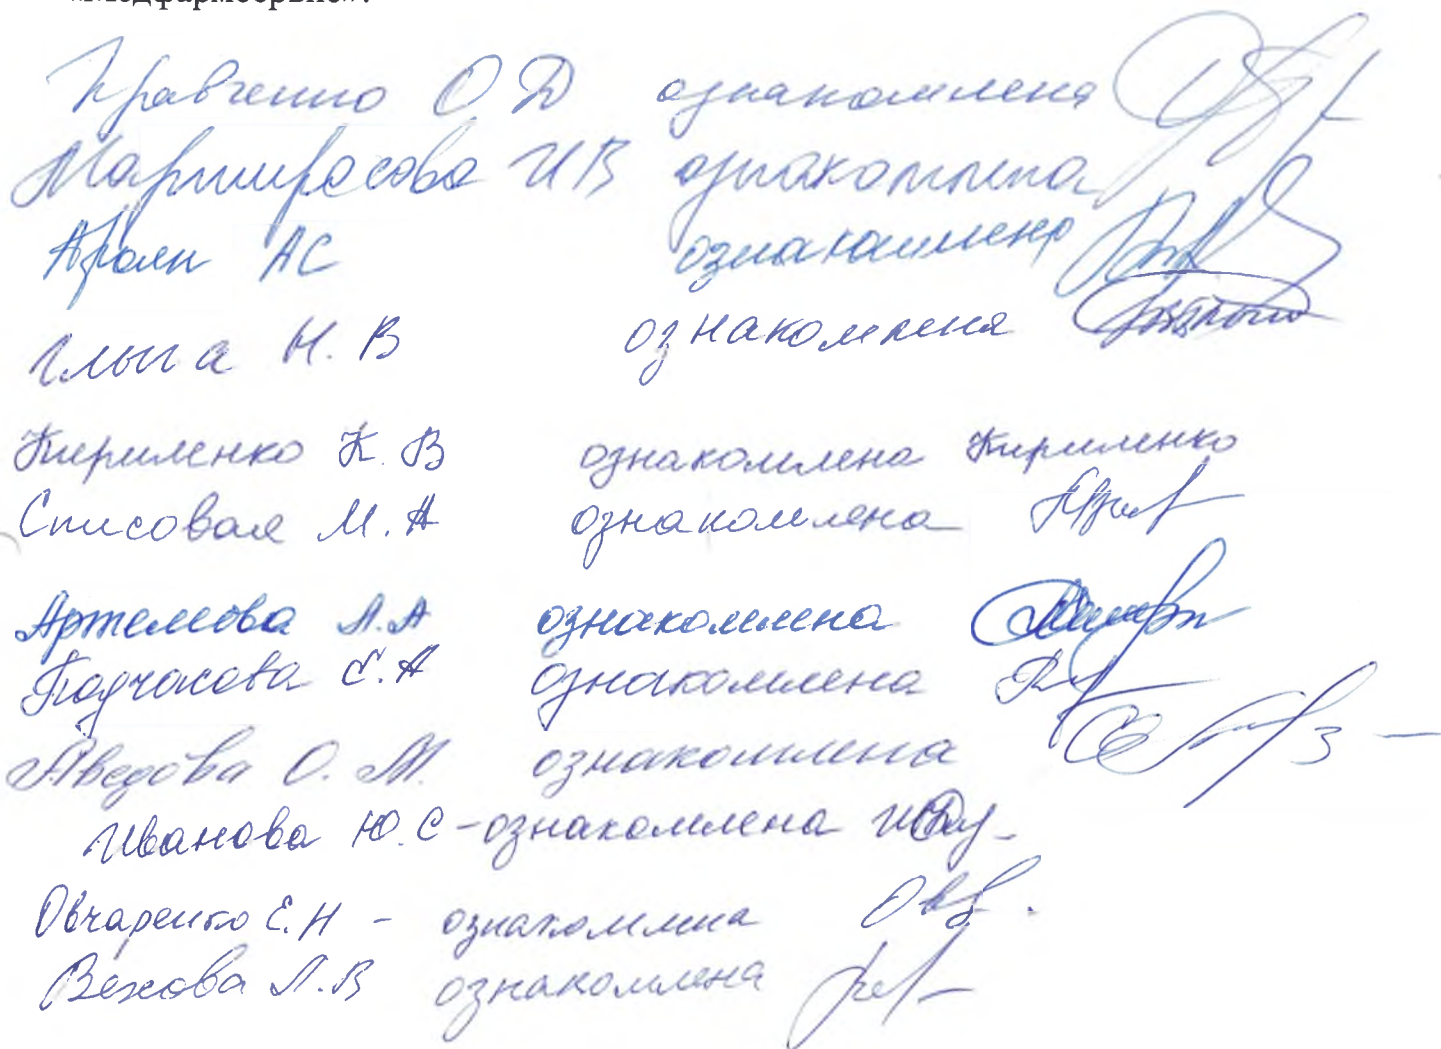 «Медфармсервис».
Кравченко О Д ознакомлена
Мартиросова И В ознакомлена
Аролн АС ознакомлена
Глыга Н. В ознакомлена
Кириленко К. В ознакомлена Кириленко
Списовая М. А ознакомлена
Артемова А. А ознакомлена
Подчасова Е. А ознакомлена
Аведова О. М. ознакомлена
Иванова Ю. С - ознакомлена
Овчаренко Е. Н - ознакомлена Овч.
Вехова Л. В ознакомлена